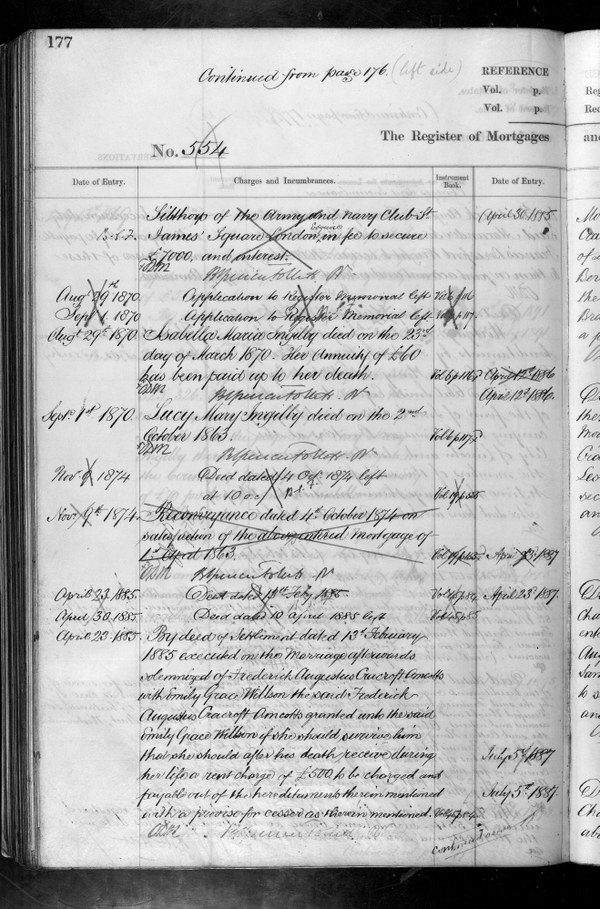 177
Continued from page 176. (left side)
REFERENCE
Vol. p.
Vol. p.
The Register of Mortgages
No. 554
Date of Entry.
Charges and Incumbrances.
Instrument Book.
Date of Entry.
Sibthorp of the Army and Navy Club St. April 30 1885
James' Square London Esquire in fee to secure
£7000, and interest.
Augt 29th 1870 Application to Register Memorial left Vol 6 p 116
Sept 1 1870 Application to Register Memorial left Vol 6 p 117
Augt 29th 1870 Isabella Maria Ingilby died on the 23rd
day of March 1870. Her Annuity of £60
has been paid up to her death. Vol 6 p 116 April 12th 1886
April 12th 1886.
Septr 1st 1870. Lucy Mary Ingilby died on the 2nd
October 1863. Vol 6 p 117
Novr 9 1874 Deed dated 4 Oct 1874 left
at 10 o'c
Novr 9th 1874. Reconveyance dated 4th October 1874 on
satisfaction of the above entered Mortgage of
1st April 1863. April 23 1887
April 23 1885. Deed dated 13th Feby 1885 April 23rd 1887.
April 30 1885 Deed dated 10 April 1885 left
April 23 1885 By deed of Settlement dated 13th February
1885 executed on the Marriage afterwards
solemnized of Frederick Augustus Cracroft Amcotts
with Emily Grace Willson the said Frederick
Augustus Cracroft Amcotts granted unto the said
Emily Grace Willson if she should survive him
that she should after his death receive during July 5th 1887
her life a rent charge of £500 to be charged and
payable out of the hereditaments therein mentioned July 5th 1887
with a proviso for cesser as therein mentioned.
continued